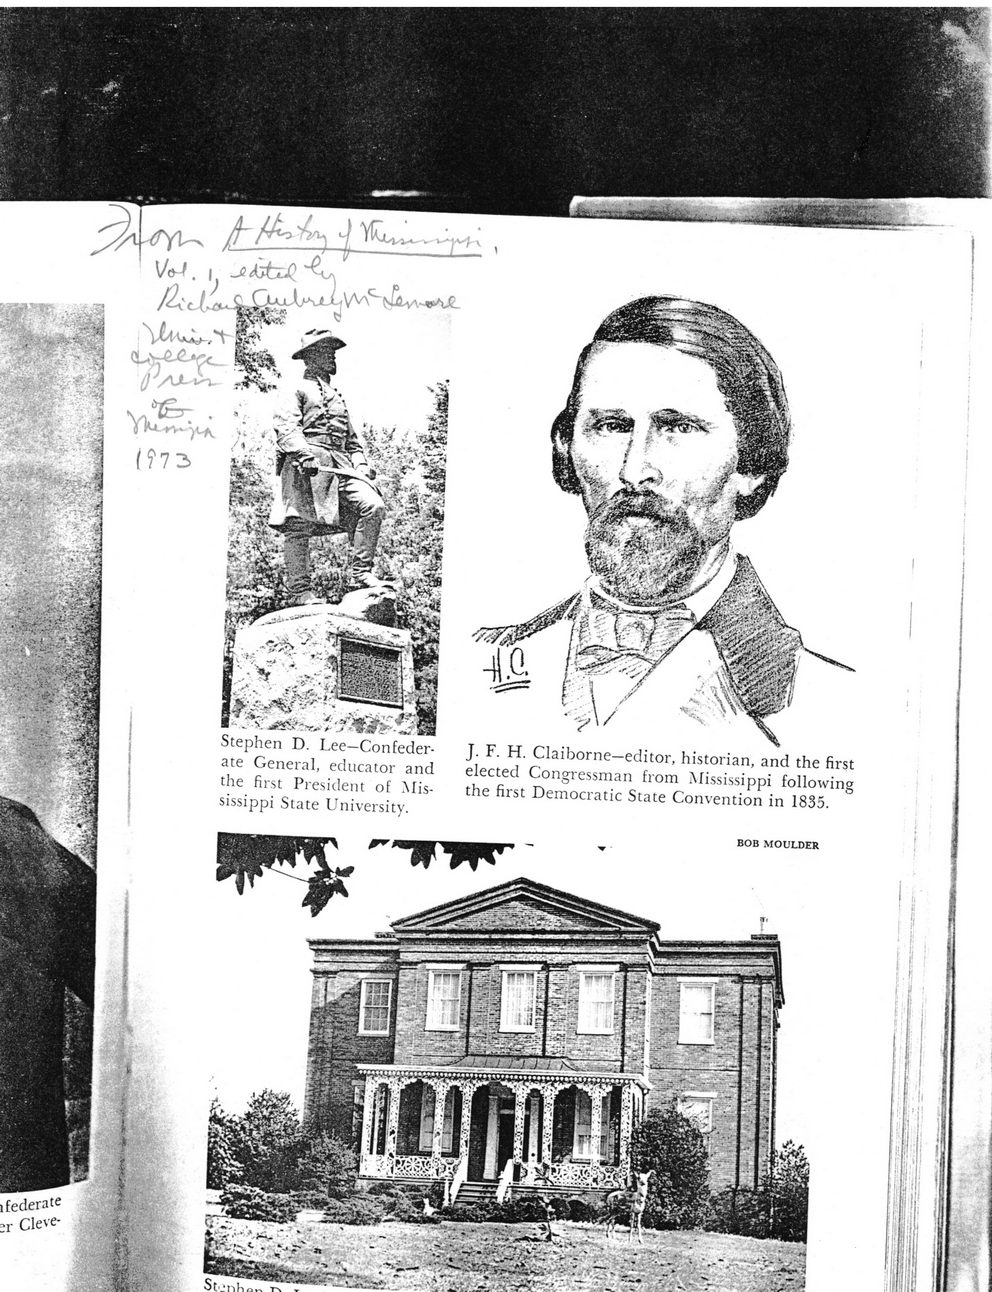 From A History of Mississippi,
Vol. 1, edited by
Richard Aubrey McLemore
Univ. &
College
Press
of
Mississippi
1973
H.C.
Stephen D. Lee—Confeder-
ate General, educator and
the first President of Mis-
sissippi State University.
J. F. H. Claiborne—editor, historian, and the first
elected Congressman from Mississippi following
the first Democratic State Convention in 1835.
BOB MOULDER
nfederate
er Cleve-
Stephen D.